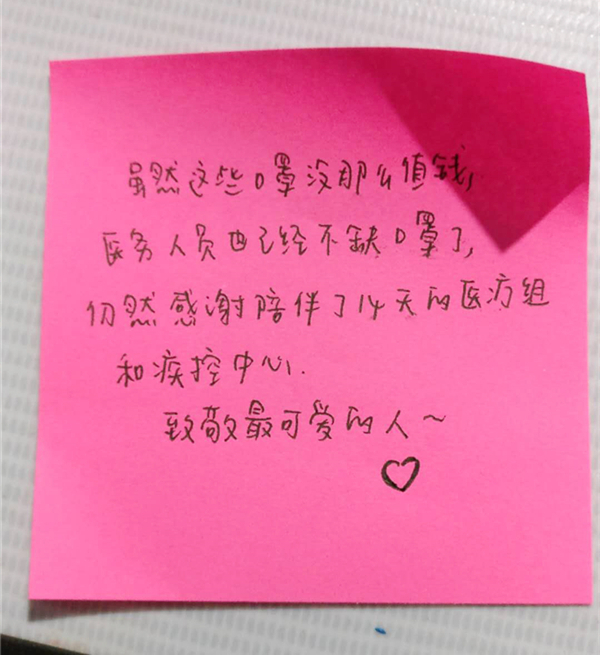 虽然这些口罩没那么值钱,
医务人员也已经不缺口罩了,
仍然感谢陪伴了14天的医疗组
和疾控中心.
致敬最可爱的人~